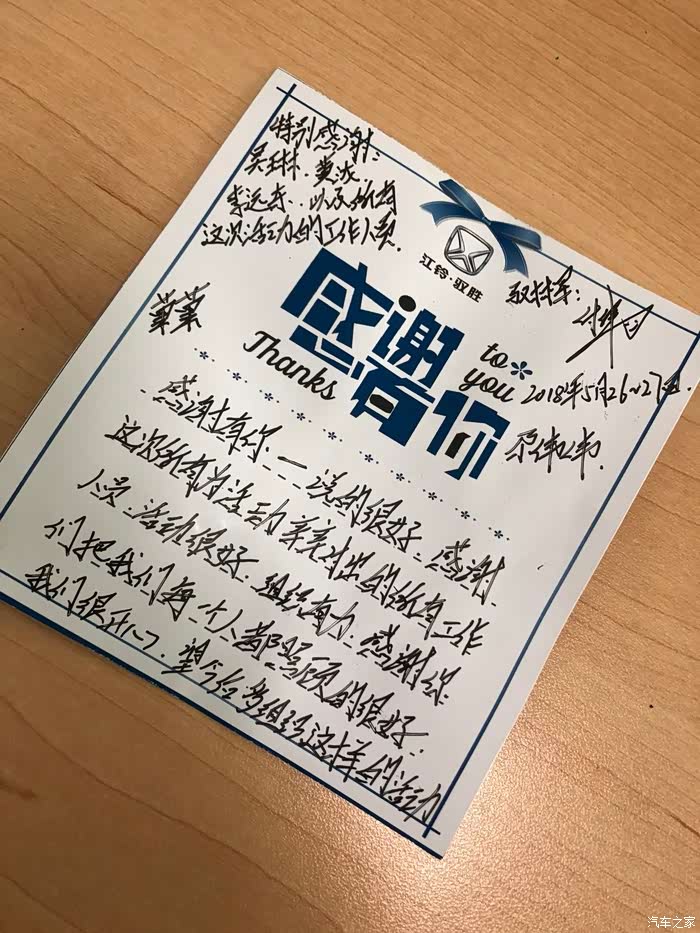 特别感谢:
吴
李远
以及所有
这次活动的工作人员.
江铃·驭胜
感谢有你
Thanks to you
2018年5月26~27日
感谢有你 一说的很好. 感谢
这次所有为活动 付出的所有工作
人员. 活动很好. 组织有力. 感谢你
们把我们每一个人都照顾的很好.
我们很开心. 望今后多组织这样的活动
汽车之家